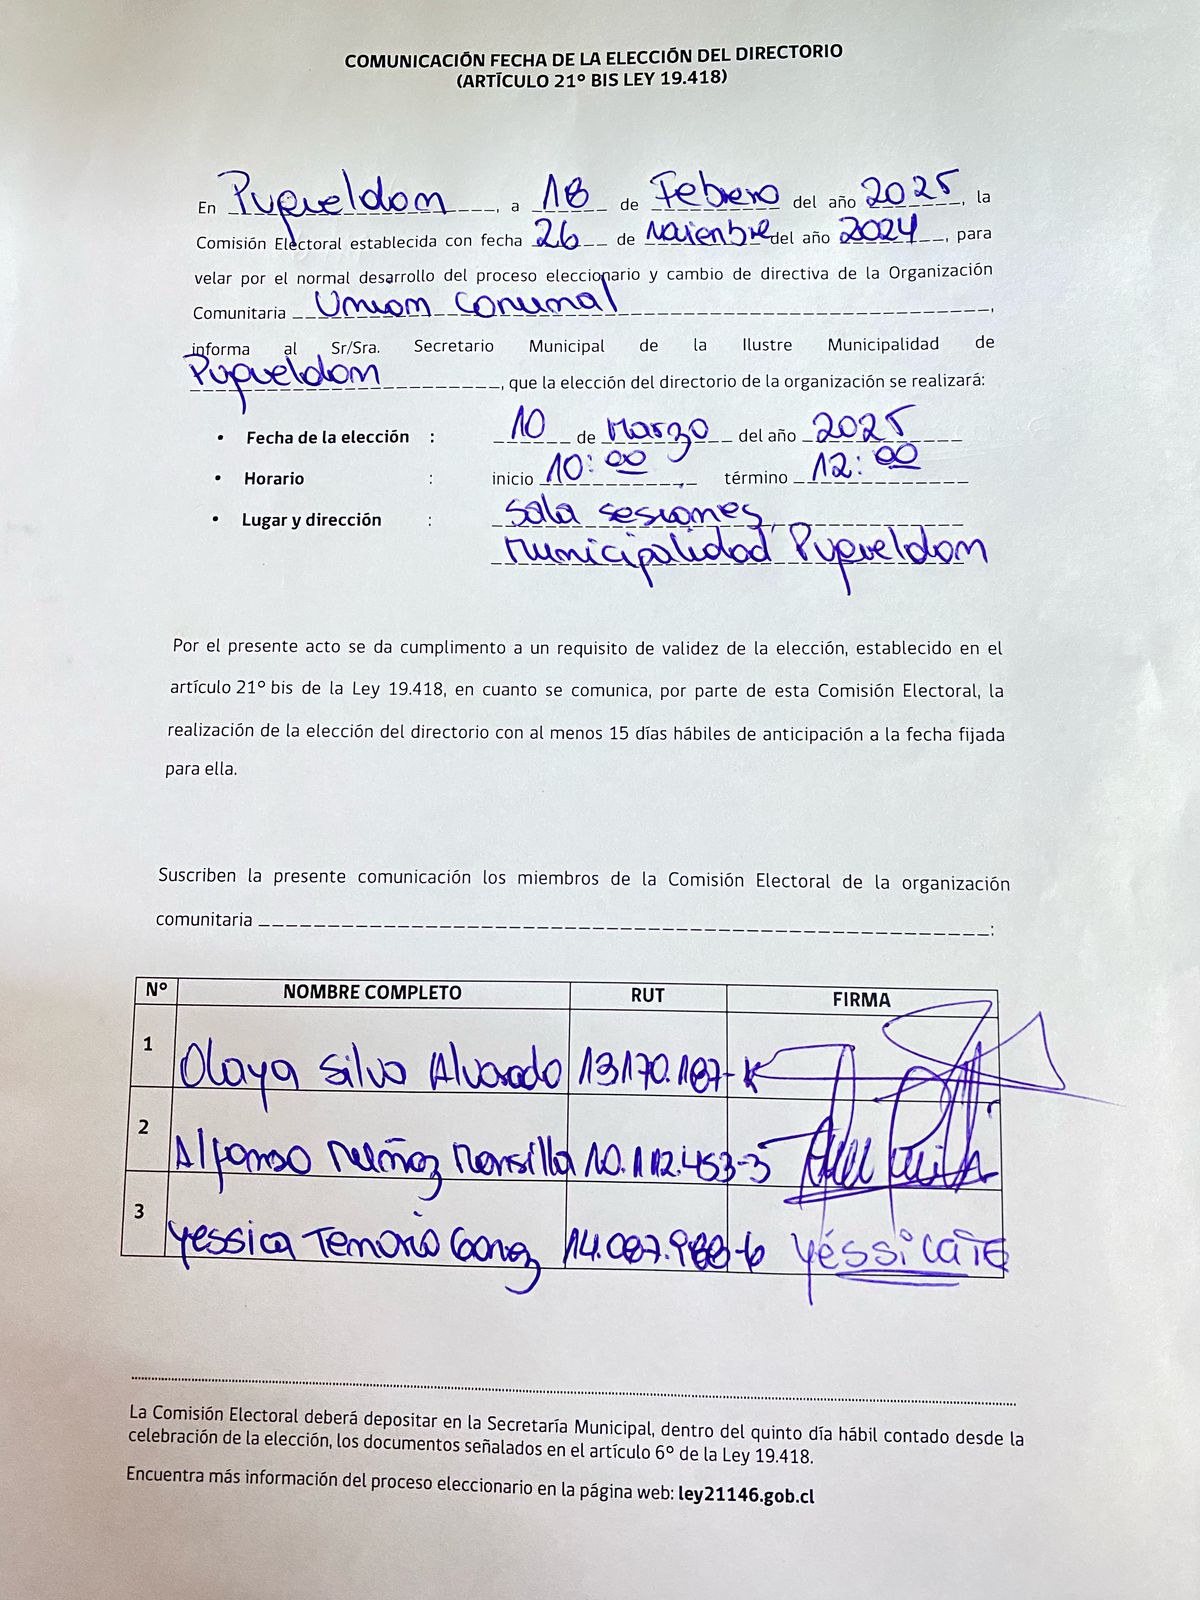 COMUNICACIÓN FECHA DE LA ELECCIÓN DEL DIRECTORIO
(ARTÍCULO 21º BIS LEY 19.418)
En Puqueldom, a 18 de Febrero del año 2025, la
Comisión Electoral establecida con fecha 26 de Noviembre del año 2024, para
velar por el normal desarrollo del proceso eleccionario y cambio de directiva de la Organización
Comunitaria Union Comunal,
informa al Sr/Sra. Secretario Municipal de la Ilustre Municipalidad de
Puqueldom, que la elección del directorio de la organización se realizará:
• Fecha de la elección : 10 de Marzo del año 2025
• Horario : inicio 10:00 término 12:00
• Lugar y dirección : Sala sesiones,
Municipalidad Puqueldom
Por el presente acto se da cumplimento a un requisito de validez de la elección, establecido en el
artículo 21º bis de la Ley 19.418, en cuanto se comunica, por parte de esta Comisión Electoral, la
realización de la elección del directorio con al menos 15 días hábiles de anticipación a la fecha fijada
para ella.
Suscriben la presente comunicación los miembros de la Comisión Electoral de la organización
comunitaria :
Nº NOMBRE COMPLETO RUT FIRMA
1 Olaya Silva Alvarado 13.170.187-K
2 Alfonso Nuñez Mansilla 10.112.453-3
3 Yessica Tenorio 14.087.988-6 YéssicaTE
La Comisión Electoral deberá depositar en la Secretaría Municipal, dentro del quinto día hábil contado desde la
celebración de la elección, los documentos señalados en el artículo 6º de la Ley 19.418.
Encuentra más información del proceso eleccionario en la página web: ley21146.gob.cl